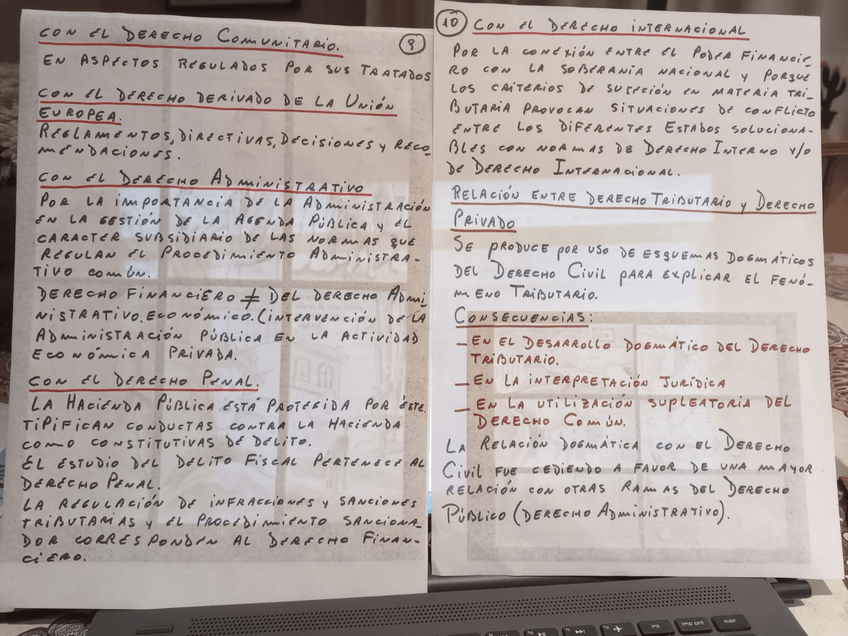 9
CON EL DERECHO COMUNITARIO.
EN ASPECTOS REGULADOS POR SUS TRATADOS
CON EL DERECHO DERIVADO DE LA UNIÓN
EUROPEA.
REGLAMENTOS, DIRECTIVAS, DECISIONES Y RECO-
MENDACIONES.
CON EL DERECHO ADMINISTRATIVO
POR LA IMPORTANCIA DE LA ADMINISTRACIÓN
EN LA GESTIÓN DE LA AGENDA PÚBLICA Y EL
CARACTER SUBSIDIARIO DE LAS NORMAS QUE
REGULAN EL PROCEDIMIENTO ADMINISTRA-
TIVO COMÚN.
DERECHO FINANCIERO ≠ DEL DERECHO ADMI-
NISTRATIVO. ECONÓMICO. (INTERVENCIÓN DE LA
ADMINISTRAACIÓN PÚBLICA EN LA ACTIVIDAD
ECONÓMICA PRIVADA.
CON EL DERECHO PENAL.
LA HACIENDA PÚBLICA ESTÁ PROTEGIDA POR ÉSTE.
TIPIFICAN CONDUCTAS CONTRA LA HACIENDA
COMO CONSTITUTIVAS DE DELITO.
EL ESTUDIO DEL DELITO FISCAL PERTENECE AL
DERECHO PENAL.
LA REGULACIÓN DE INFRACCIONES Y SANCIONES
TRIBUTARIAS Y EL PROCEDIMIENTO SANCIONA-
DOR CORRESPONDEN AL DERECHO FINAN-
CIERO.
10
CON EL DERECHO INTERNACIONAL
POR LA CONEXIÓN ENTRE EL PODER FINANCIE-
RO CON LA SOBERANÍA NACIONAL Y PORQUE
LOS CRITERIOS DE SUJECIÓN EN MATERIA TRI-
BUTARIA PROVOCAN SITUACIONES DE CONFLICTO
ENTRE LOS DIFERENTES ESTADOS SOLUCIONA-
BLES CON NORMAS DE DERECHO INTERNO Y/O
DE DERECHO INTERNACIONAL.
RELACIÓN ENTRE DERECHO TRIBUTARIO Y DERECHO
PRIVADO
SE PRODUCE POR USO DE ESQUEMAS DOGMÁTICOS
DEL DERECHO CIVIL PARA EXPLICAR EL FENÓ-
MENO TRIBUTARIO.
CONSECUENCIAS:
– EN EL DESARROLLO DOGMÁTICO DEL DERECHO
TRIBUTARIO.
– EN LA INTERPRETACIÓN JURÍDICA
– EN LA UTILIZACIÓN SUPLEATORIA DEL
DERECHO COMÚN.
LA RELACIÓN DOGMÁTICA CON EL DERECHO
CIVIL FUE CEDIENDO A FAVOR DE UNA MAYOR
RELACIÓN CON OTRAS RAMAS DEL DERECHO
PÚBLICO (DERECHO ADMINISTRATIVO).
ins
imp pnt
supr